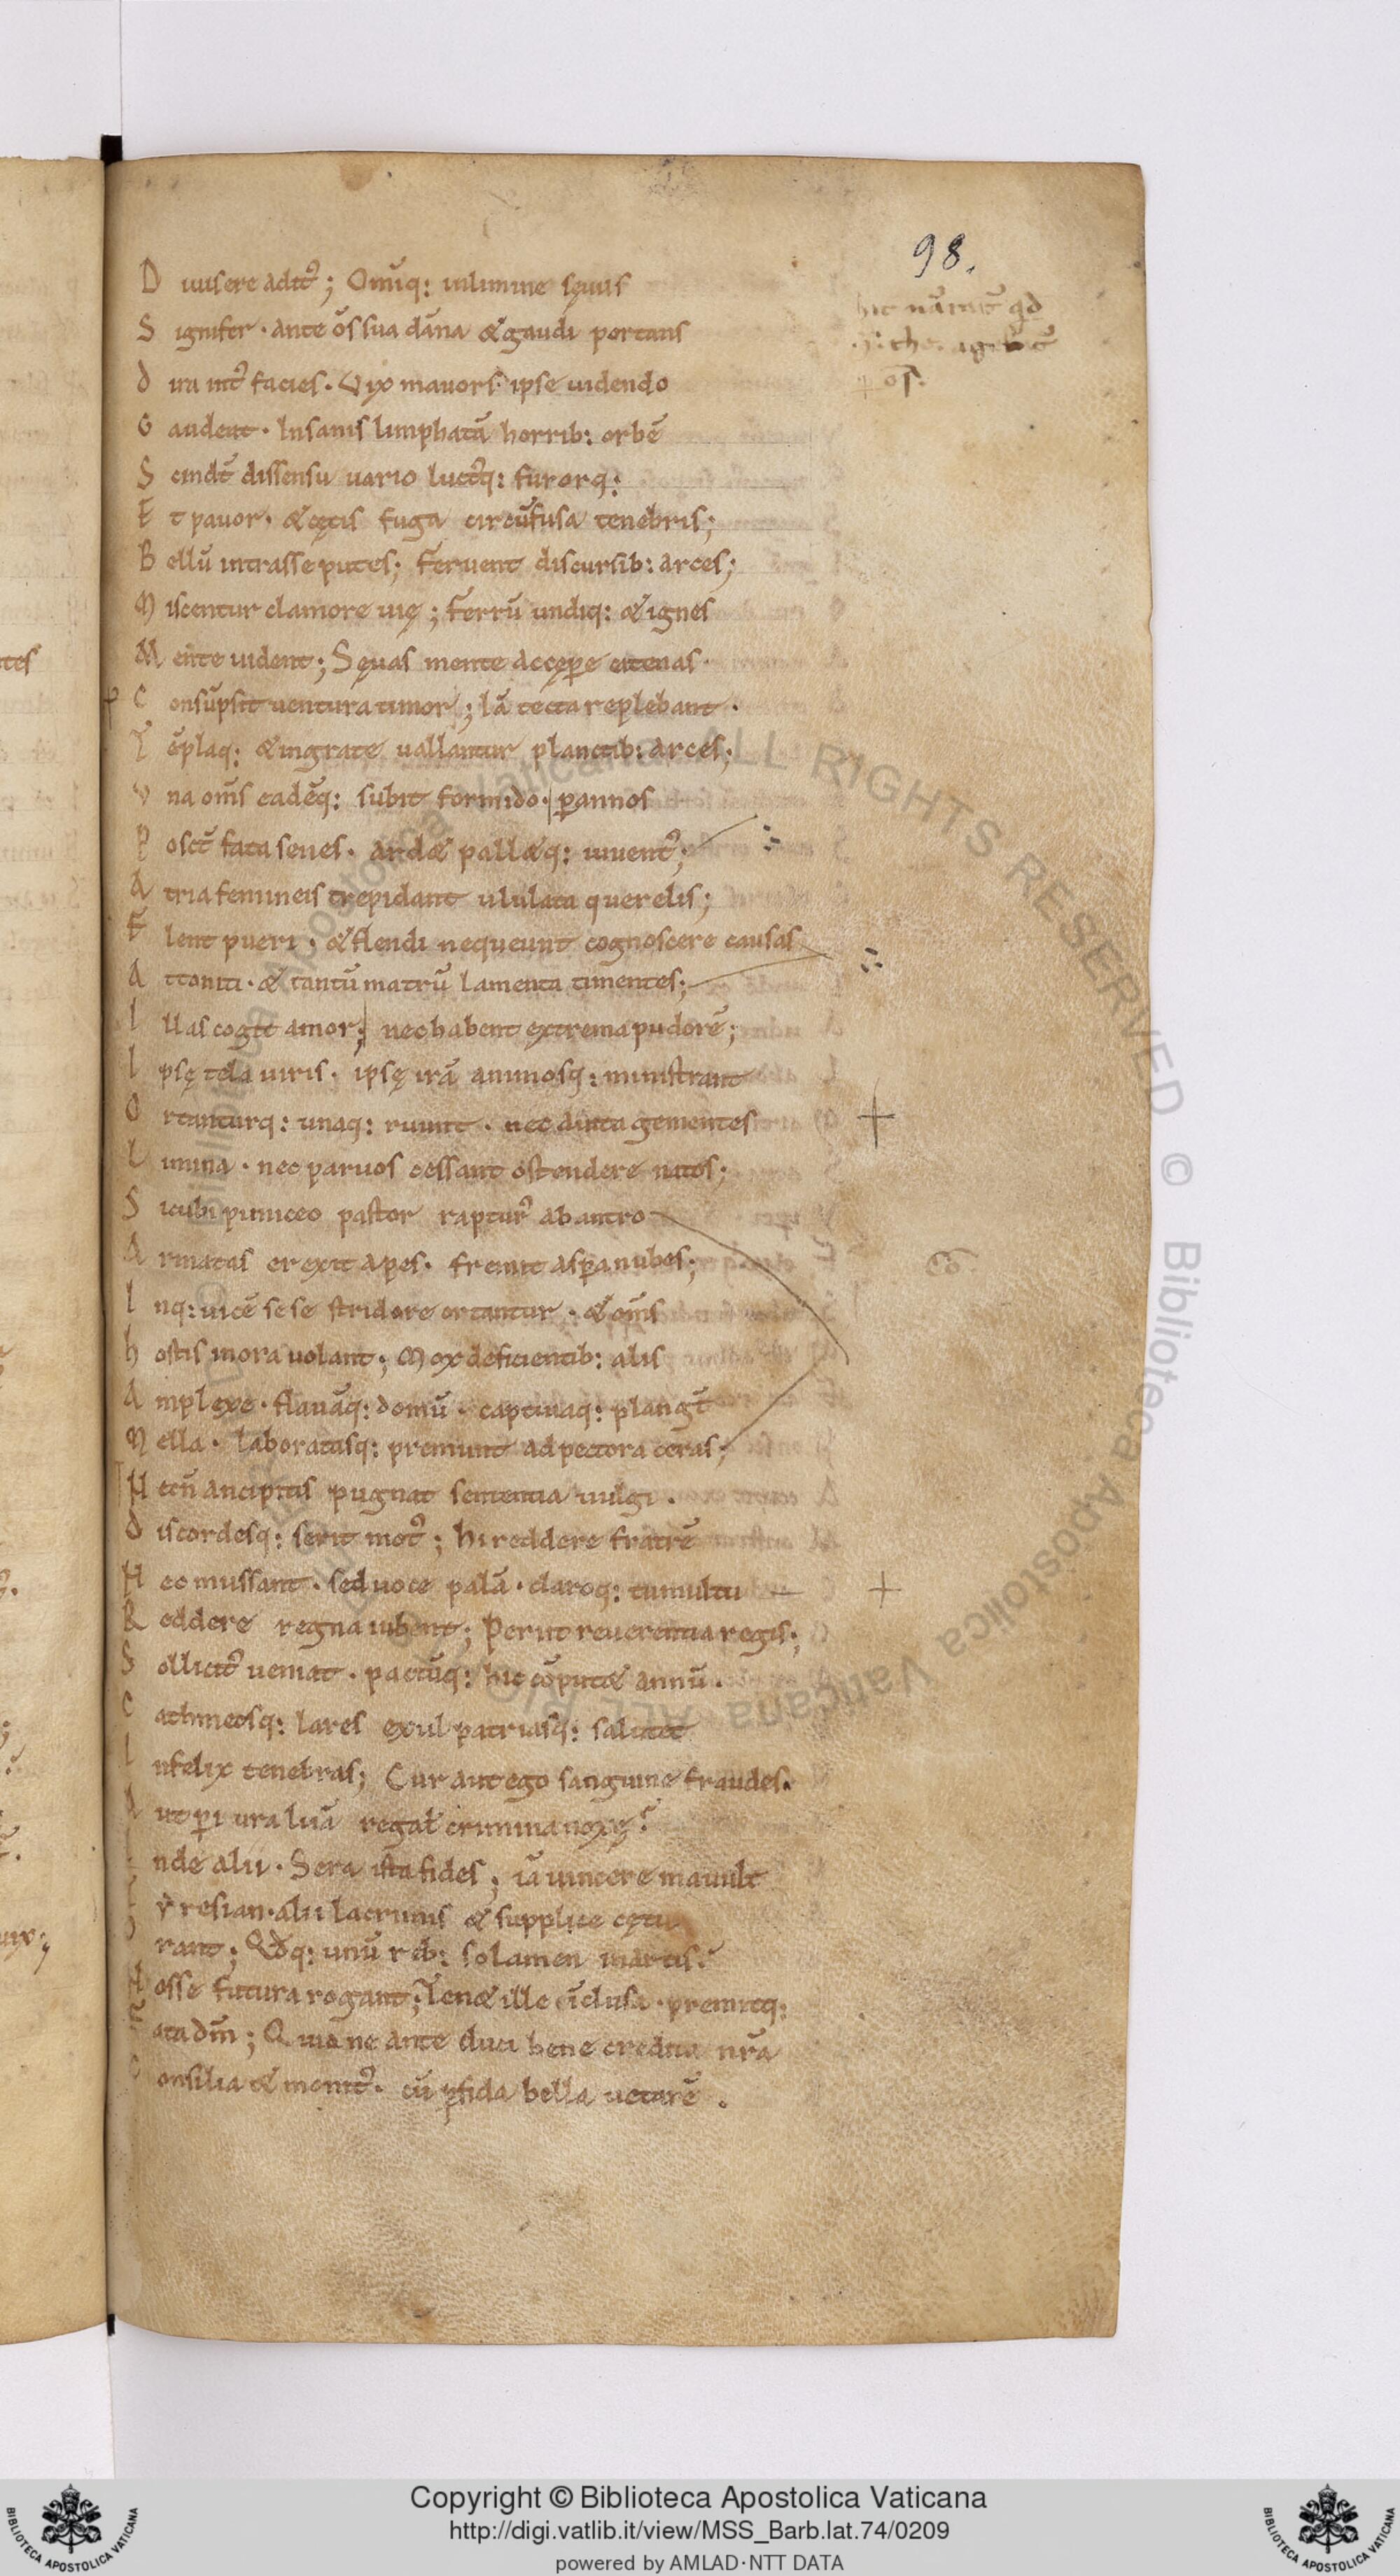 98.
D iuisere aditᷣ; Omīq: inlimine sęuus
S ignifer · ante ōs sua dāna & gaudi portans
d ira int̄ facies · Vix mauors ipse uidendo
G audent · Insanis limphatā horrib: orbē
S cindt̄ dissensu uario luctᷣq: furorq:
E t pauor · & cętis fuga circūfusa tenebris;
B ellū intrasse putes; feruent discursib: arces;
M iscentur clamore uię; ferrū undiq: & ignes
M ente uident; Sęuas mente accępe catenas ·
C onsūpsit uentura timor; Iā tecta replebant ·
T ēplaq: & ingrate uallantur planctib: arces;
V na om̄s eadēq: subit formido · p annos
P osct̄ fata senes · ard& pall&q: iuuentᷣ;
A tria femineis trepidant ululata querelis;
F lent pueri · & flendi nequeunt cognoscere causas
A ttoniti · & tantū matrū lamenta timentes;
I llas cogit amor; nec habent extrema pudorē;
I psę tela uiris · ipsę irā animosq: ministrant
O rtanturq: unaq: ruunt · nec auita gementes
L imina · nec paruos cessant ostendere natos;
S icubi pumiceo pastor rapturᷣ ab antro
A rmatas erexit apes · fremit aspa nubes;
I nq: uicē sese stridore ortantur · & om̄s
h ostis inora uolant; Mox deficientib: alis
A mplexe · flauāq: domū · captiuaq: plangt̄
M ella · laboratasq: premunt ad pectora ceras;
N ecn̄ ancipitis pugnat sententia uulgi ·
d iscordesq: serit motᷣ; hi reddere fratrē
N eo mussant · sed uoce palā · claroq: tumultu
R eddere regna iubent; Perit reuerentia regis;
S ollicitᷣ ueniat · pactūq: hic cōput& annū ·
C athmeosq: lares exul patriasq: salutet
I nfelix tenebras; Cur aut ego sanguine fraudes ·
A ut piura luā regal̄ crimina noxę?
I nde alii · Sera ista fides; iā uincere mauult
T yresian · alii lacrimis & supplice cętu
O rant; Qdq: unū reb: solamen in artis ·
N osse futura rogant; Ten& ille īclusa · premitq:
F ata dm̄; Quia ne ante duci bene credita nr̄a
C onsilia & monitᷣ · cū pfida bella uetarē ·
Copyright © Biblioteca Apostolica Vaticana
http://digi.vatlib.it/view/MSS_Barb.lat.74/0209
powered by AMLAD·NTT DATA